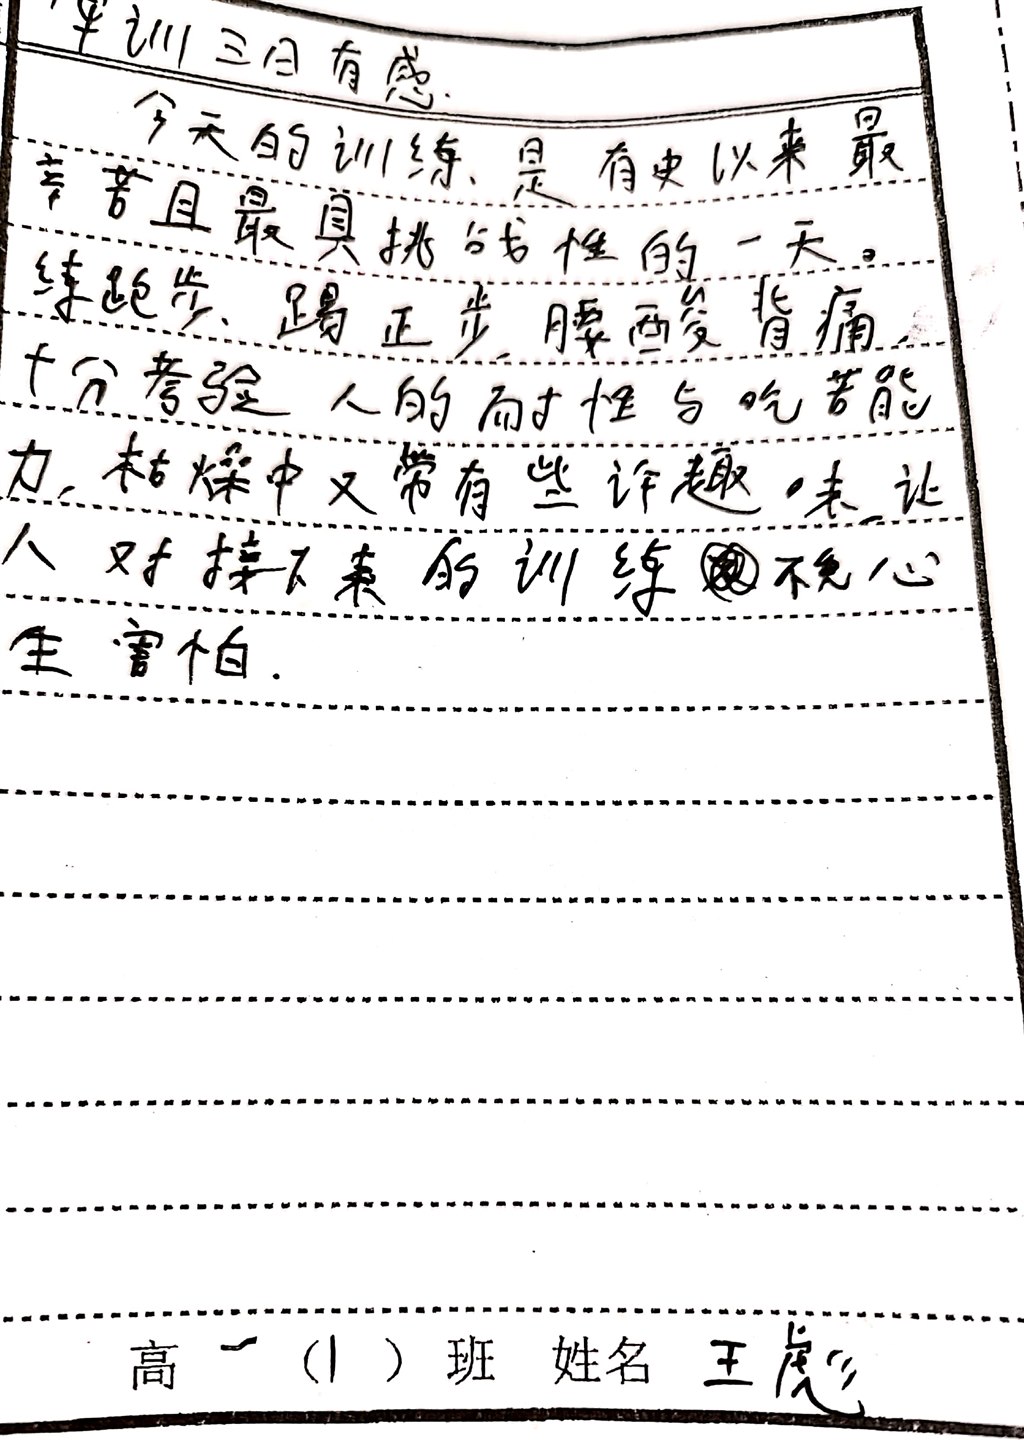 军训三日有感.
今天的训练、是有史以来最
辛苦且最具挑战性的一天。
练跑步、踢正步,腰酸背痛,
十分考验人的耐性与吃苦能
力,枯燥中又带有些许趣味,让
人对接下来的训练不免心
生害怕.
高一(1)班 姓名 王彪